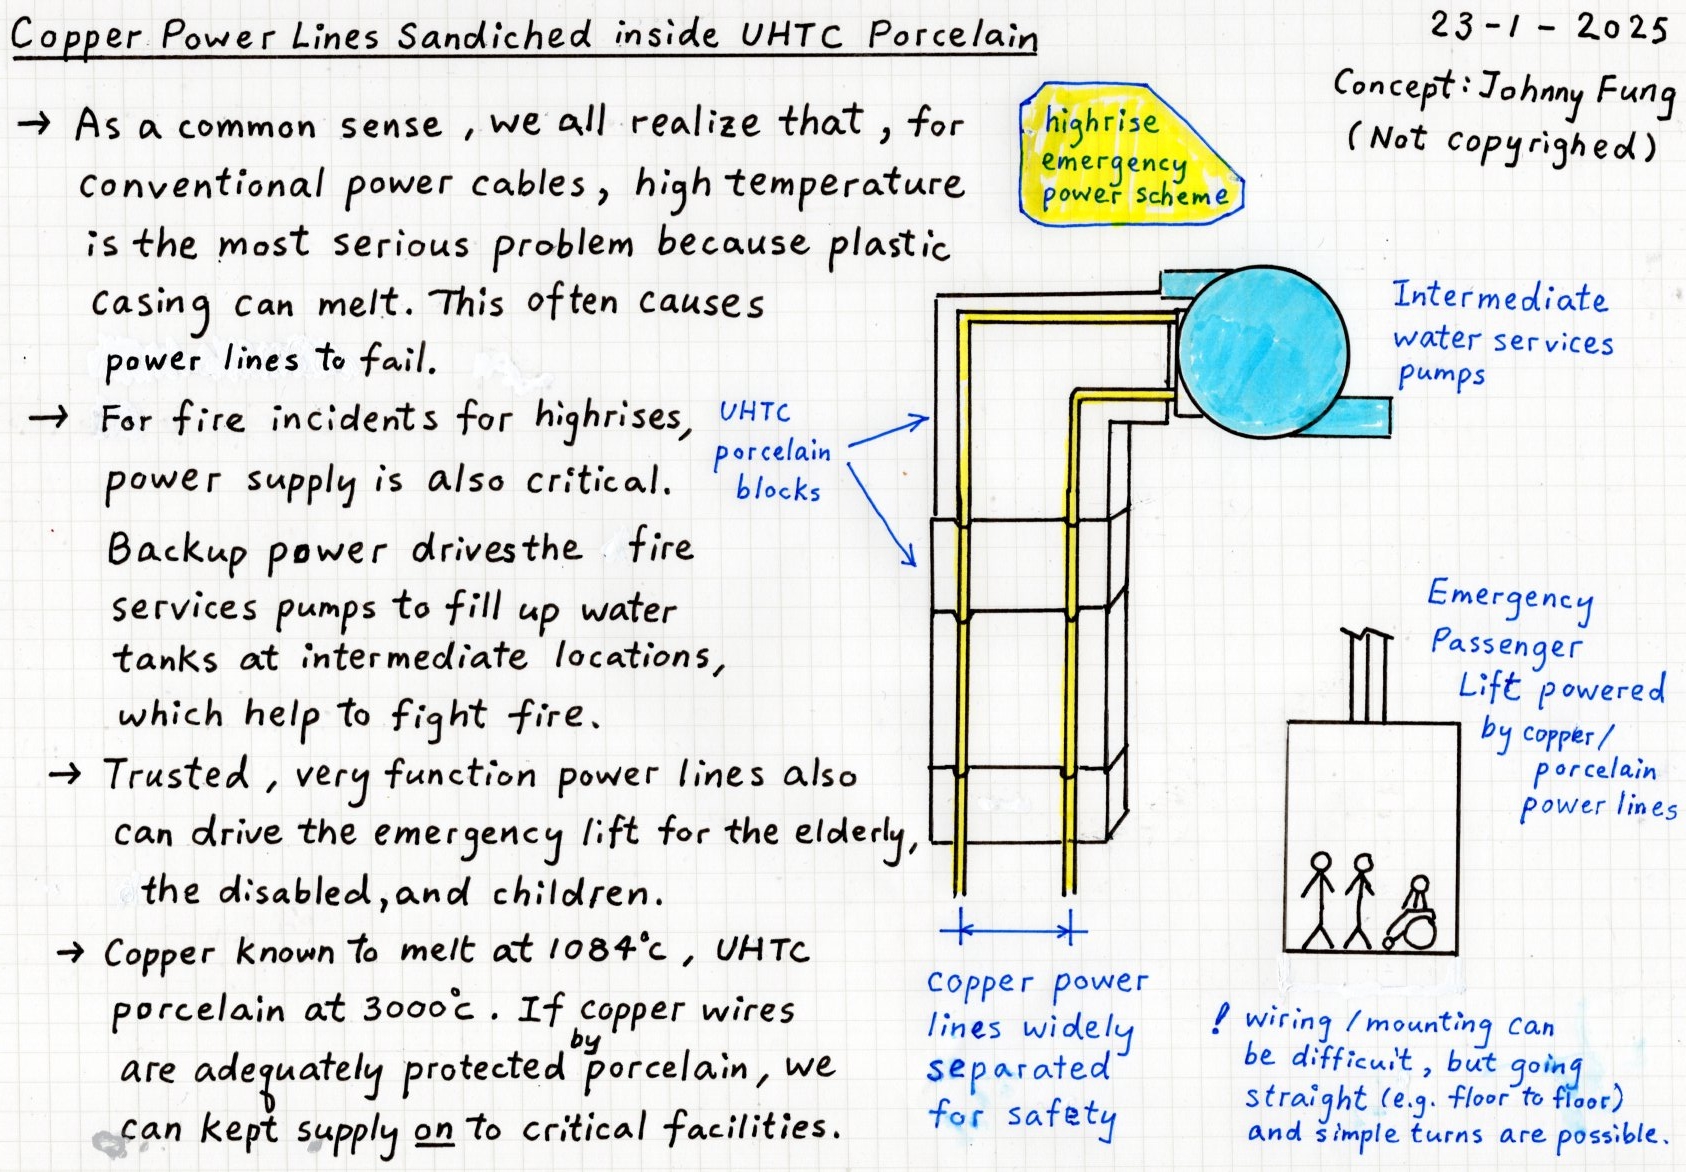 Copper Power Lines Sandiched inside UHTC Porcelain
23-1-2025
Concept: Johnny Fung
(Not copyrighed)
→ As a common sense, we all realize that, for
conventional power cables, high temperature
is the most serious problem because plastic
casing can melt. This often causes
power lines to fail.
→ For fire incidents for highrises,
power supply is also critical.
Backup power drives the fire
services pumps to fill up water
tanks at intermediate locations,
which help to fight fire.
→ Trusted, very function power lines also
can drive the emergency lift for the elderly,
the disabled, and children.
→ Copper known to melt at 1084°c, UHTC
porcelain at 3000°c. If copper wires
are adequately protected by porcelain, we
can kept supply on to critical facilities.
highrise
emergency
power scheme
Intermediate
water services
pumps
UHTC
porcelain
blocks
Emergency
Passenger
Lift powered
by copper/
porcelain
power lines
copper power
lines widely
separated
for safety
! wiring/mounting can
be difficuit, but going
straight (e.g. floor to floor)
and simple turns are possible.